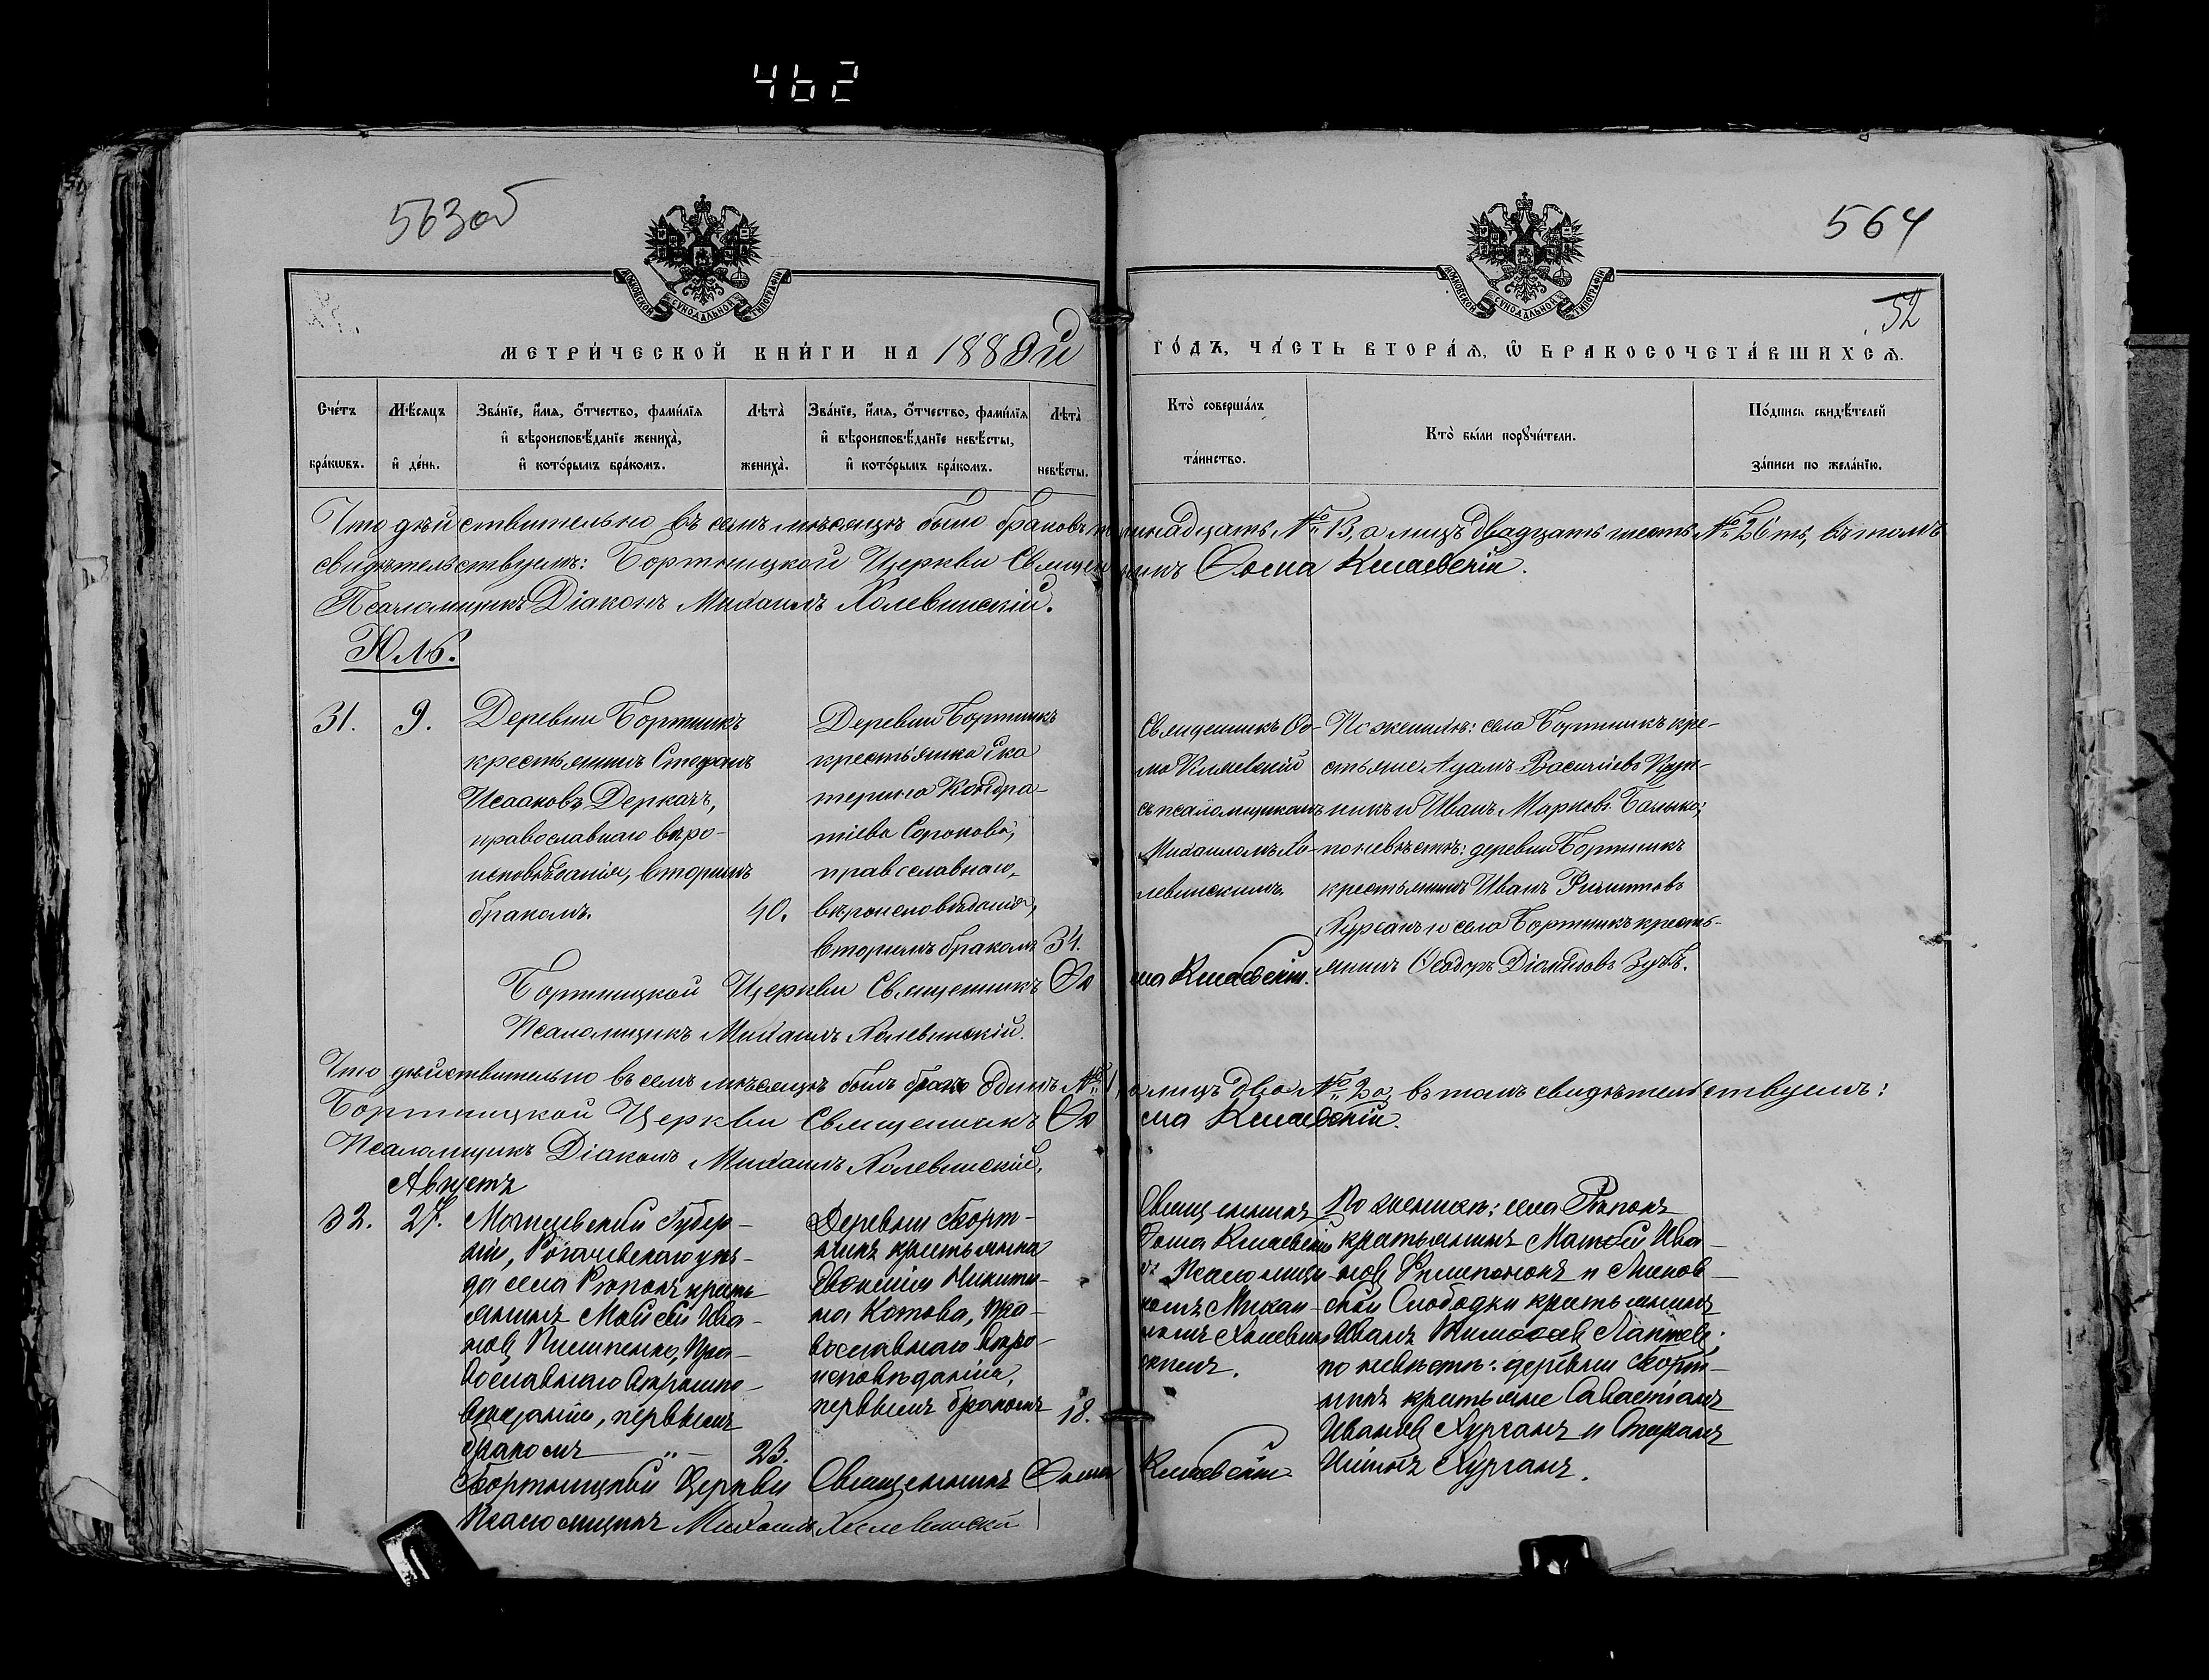 462
563об
564
52
МОСКОВСКОЙ СУНОДАЛЬНОЙ ТИПОГРАФІИ
МОСКОВСКОЙ СУНОДАЛЬНОЙ ТИПОГРАФІИ
МЕТРИ́ЧЕСКОЙ КНИ́ГИ НА 188 й ГО́ДЪ, ЧА́СТЬ ВТОРА́Ѧ, Ѡ БРАКОСОЧЕТА́ВШИХСѦ.
Сче́тъ бра́кѡвъ.
Мѣ́сяцъ и҆ де́нь.
Зва́нїе, и҆́мѧ, ѻ҆́тчество, фами́лїѧ и҆ вѣроисповѣ́данїе жениха̀, и҆ кото́рымъ бра́комъ.
Лѣта̀ жениха̀.
Зва́нїе, и҆́мѧ, ѻ҆́тчество, фами́лїѧ и҆ вѣроисповѣ́данїе невѣ́сты, и҆ кото́рымъ бра́комъ.
Лѣта̀ невѣ́сты.
Кто̀ соверша́лъ та́инство.
Кто̀ бы́ли порꙋчи́тели.
По́дпись свидѣ́телей за́писи по жела́нїю.
Что дѣйствительно въ семъ мѣсяцѣ было браковъ тринадцать № 13, а лицъ двадцать шесть № 26ть, въ томъ
свидѣтельствуемъ: Бортницкой Церкви Священникъ Ѳома Кмаевскій.
Псаломщикъ Діаконъ Михаилъ Холевинскій.
Юль.
31.
9.
Деревни Бортникъ
крестьянинъ Стефанъ
Исааковъ Деркачъ,
православнаго вѣро-
исповѣданія, вторымъ
бракомъ.
40.
Деревни Бортникъ
крестьянка Ека
терина Кондра-
тіева Сорокова,
православнаго
вѣроисповѣданія,
вторымъ бракомъ
34.
Священникъ Ѳо-
ма Кмаевскій
съ псаломщикомъ
Михаиломъ Хо-
левинскимъ.
По женихѣ: села Бортникъ кре-
стьяне Адамъ Васильевъ
никъ и Иванъ Марковъ
по невѣстѣ: деревни Бортникъ
крестьянинъ Иванъ Филиповъ
Курганъ и села Бортникъ кресть-
янинъ Ѳеодоръ Зубъ.
Бортницкой Церкви Священникъ Ѳома Кмаевскій.
Псаломщикъ Михаилъ Холевинскій.
Что дѣйствительно въ семъ мѣсяцѣ былъ бракъ одинъ № 1, а лицъ два № 2а, въ томъ свидѣтельствуемъ:
Бортницкой Церкви Священникъ Ѳома Кмаевскій.
Псаломщикъ Діаконъ Михаилъ Холевинскій.
Августъ
32.
27.
Могилевской Губер-
ніи, Рогачевскаго уѣз-
да села крестъ
янинъ Мойсей Ива-
новъ Пилипенко, Пра-
вославнаго Вѣроиспо-
вѣданія, первымъ
бракомъ — „ —
23.
Деревни Борт-
никъ крестьянка
Евфимія Никити-
на Котова, Пра-
вославнаго Вѣро-
исповѣданія,
первымъ бракомъ
18.
Священникъ
Ѳома Кмаевскій
съ Псаломщи-
комъ Михаи-
ломъ Холевин-
скимъ.
По женихѣ: села
крестьянинъ Матвѣй Ива-
новъ Филипенокъ и
Слободки крестьянинъ
Иванъ Тимоѳеевъ Лаптевъ;
по невѣстѣ: деревни Борт-
никъ крестьяне Савастіанъ
Ивановъ Курганъ и Стефанъ
Курганъ.
Бортницкой Церкви Священникъ Ѳома Кмаевскій
Псаломщикъ Михаилъ Холевинскій